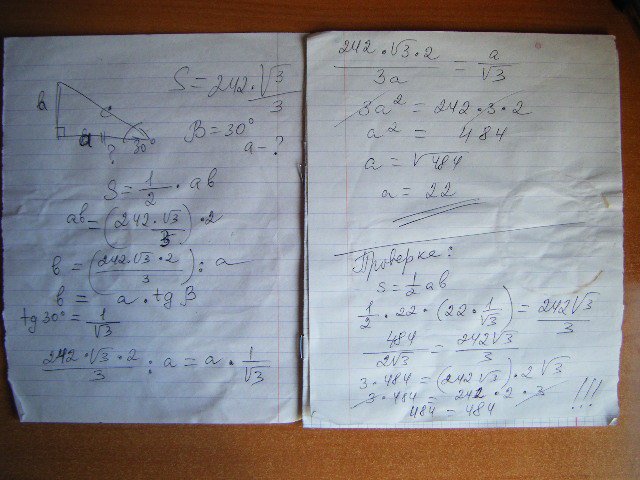 S = 242·√3/3
в
c
a
?
30°
B = 30°
a - ?
S = 1/2 · ав
ав = (242·√3/3)·2
в = (242·√3·2/3) : a
в = a · tg B
tg 30° = 1/√3
242·√3·2/3 : a = a · 1/√3
242·√3·2/3a = a/√3
3a² = 242·3·2
a² = 484
a = √484
a = 22
Проверка:
S = 1/2 ав
1/2 · 22 · (22 · 1/√3) = 242√3/3
484/2√3 = 242√3/3
3·484 = (242√3)·2√3
3·484 = 242·2·3
484 - 484 !!!